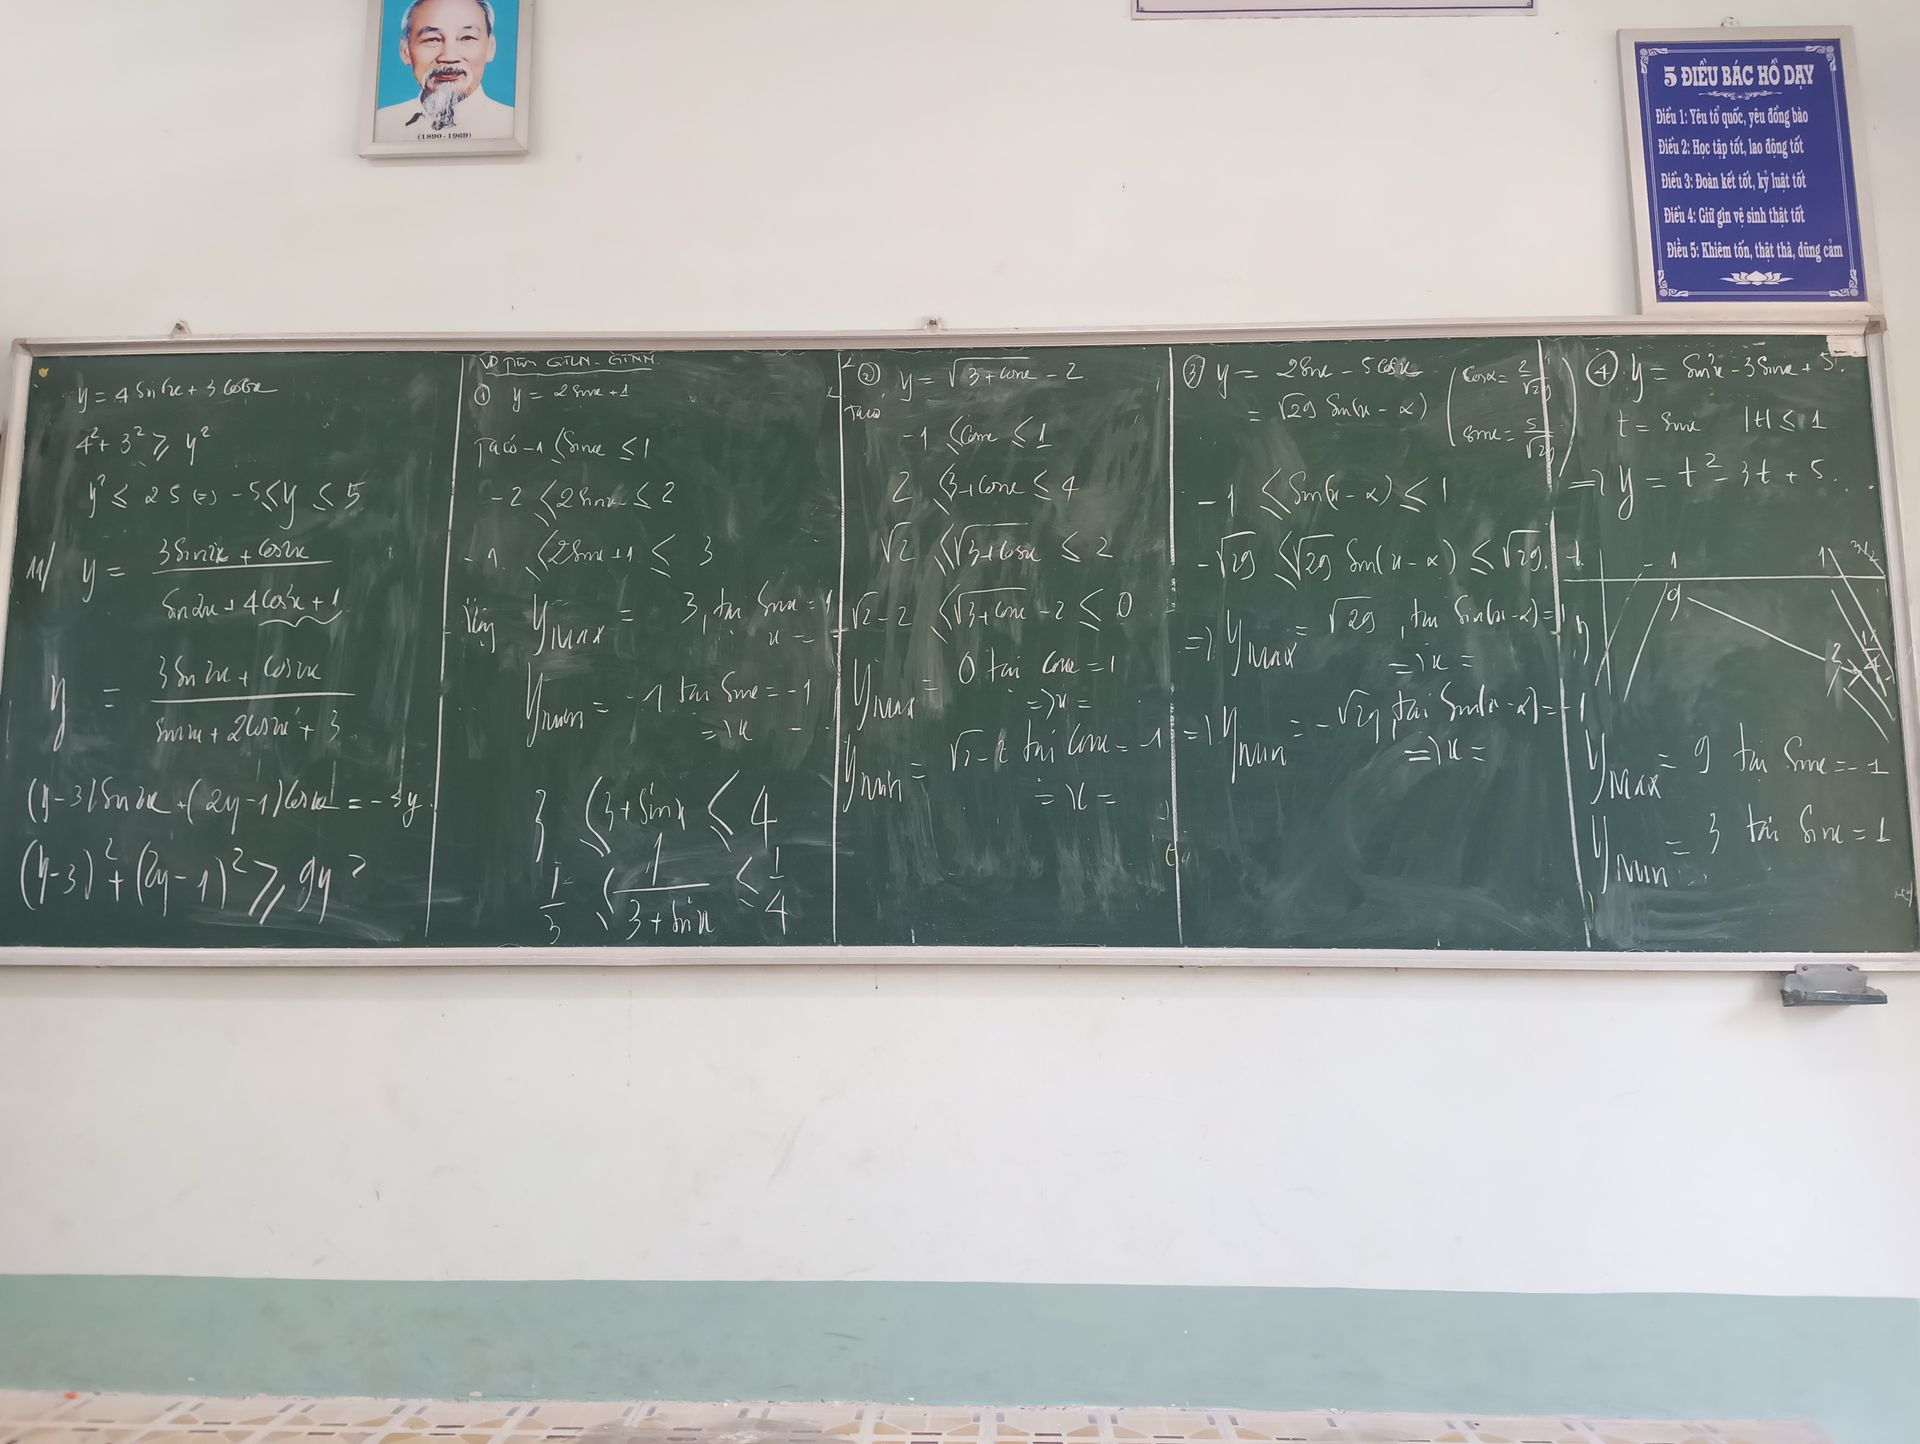 (1890-1969)
5 ĐIỀU BÁC HỒ DẠY
Điều 1: Yêu tổ quốc, yêu đồng bào
Điều 2: Học tập tốt, lao động tốt
Điều 3: Đoàn kết tốt, kỷ luật tốt
Điều 4: Giữ gìn vệ sinh thật tốt
Điều 5: Khiêm tốn, thật thà, dũng cảm
4² + 3² ⩾ y²
y² ≤ 25 (=) -5 ≤ y ≤ 5
11/ y = (3 sin2x + cos2x) / (sin2x + 4cos²x + 1)
y = (3 sin2x + cos2x) / (sin2x + 2cos2x + 3)
(y-3) sin2x + (2y-1) cos2x = -3y
(y-3)² + (2y-1)² ⩾ 9y²
VD Tìm GTLN - GTNN
① y = 2 sinx + 1
Ta có -1 ≤ sinx ≤ 1
-2 ≤ 2 sinx ≤ 2
-1 ≤ 2 sinx + 1 ≤ 3
Vậy yMax = 3, tại sinx = 1
x =
ymin = -1 tại sinx = -1
=> x =
3 ≤ 3 + sinx ≤ 4
≤ 1/(3 + sinx) ≤ 1/4
② y = √(3 + cosx) - 2
Ta có
-1 ≤ cosx ≤ 1
2 ≤ 3 + cosx ≤ 4
√2 ≤ √(3 + cosx) ≤ 2
√2 - 2 ≤ √(3 + cosx) - 2 ≤ 0
yMax = 0 tại cosx = 1
=> x =
ymin = √2 - 2 tại cosx = -1
=> x =
③ y = 2 sinx - 5 cosx
= √29 sin(x - α) (cosα = 2/√29
= 5/√29)
-1 ≤ sin(x - α) ≤ 1
-√29 ≤ √29 sin(x - α) ≤ √29
=> yMax = √29, tại sin(x - α) = 1
=> x =
=> ymin = -√29, tại sin(x - α) = -1
=> x =
④ y = sin²x - 3 sinx + 5
t = sinx |t| ≤ 1
=> y = t² - 3t + 5
t -1 1 3/2
y 9 3 11/4
yMax = 9 tại sinx = -1
ymin = 3 tại sinx = 1